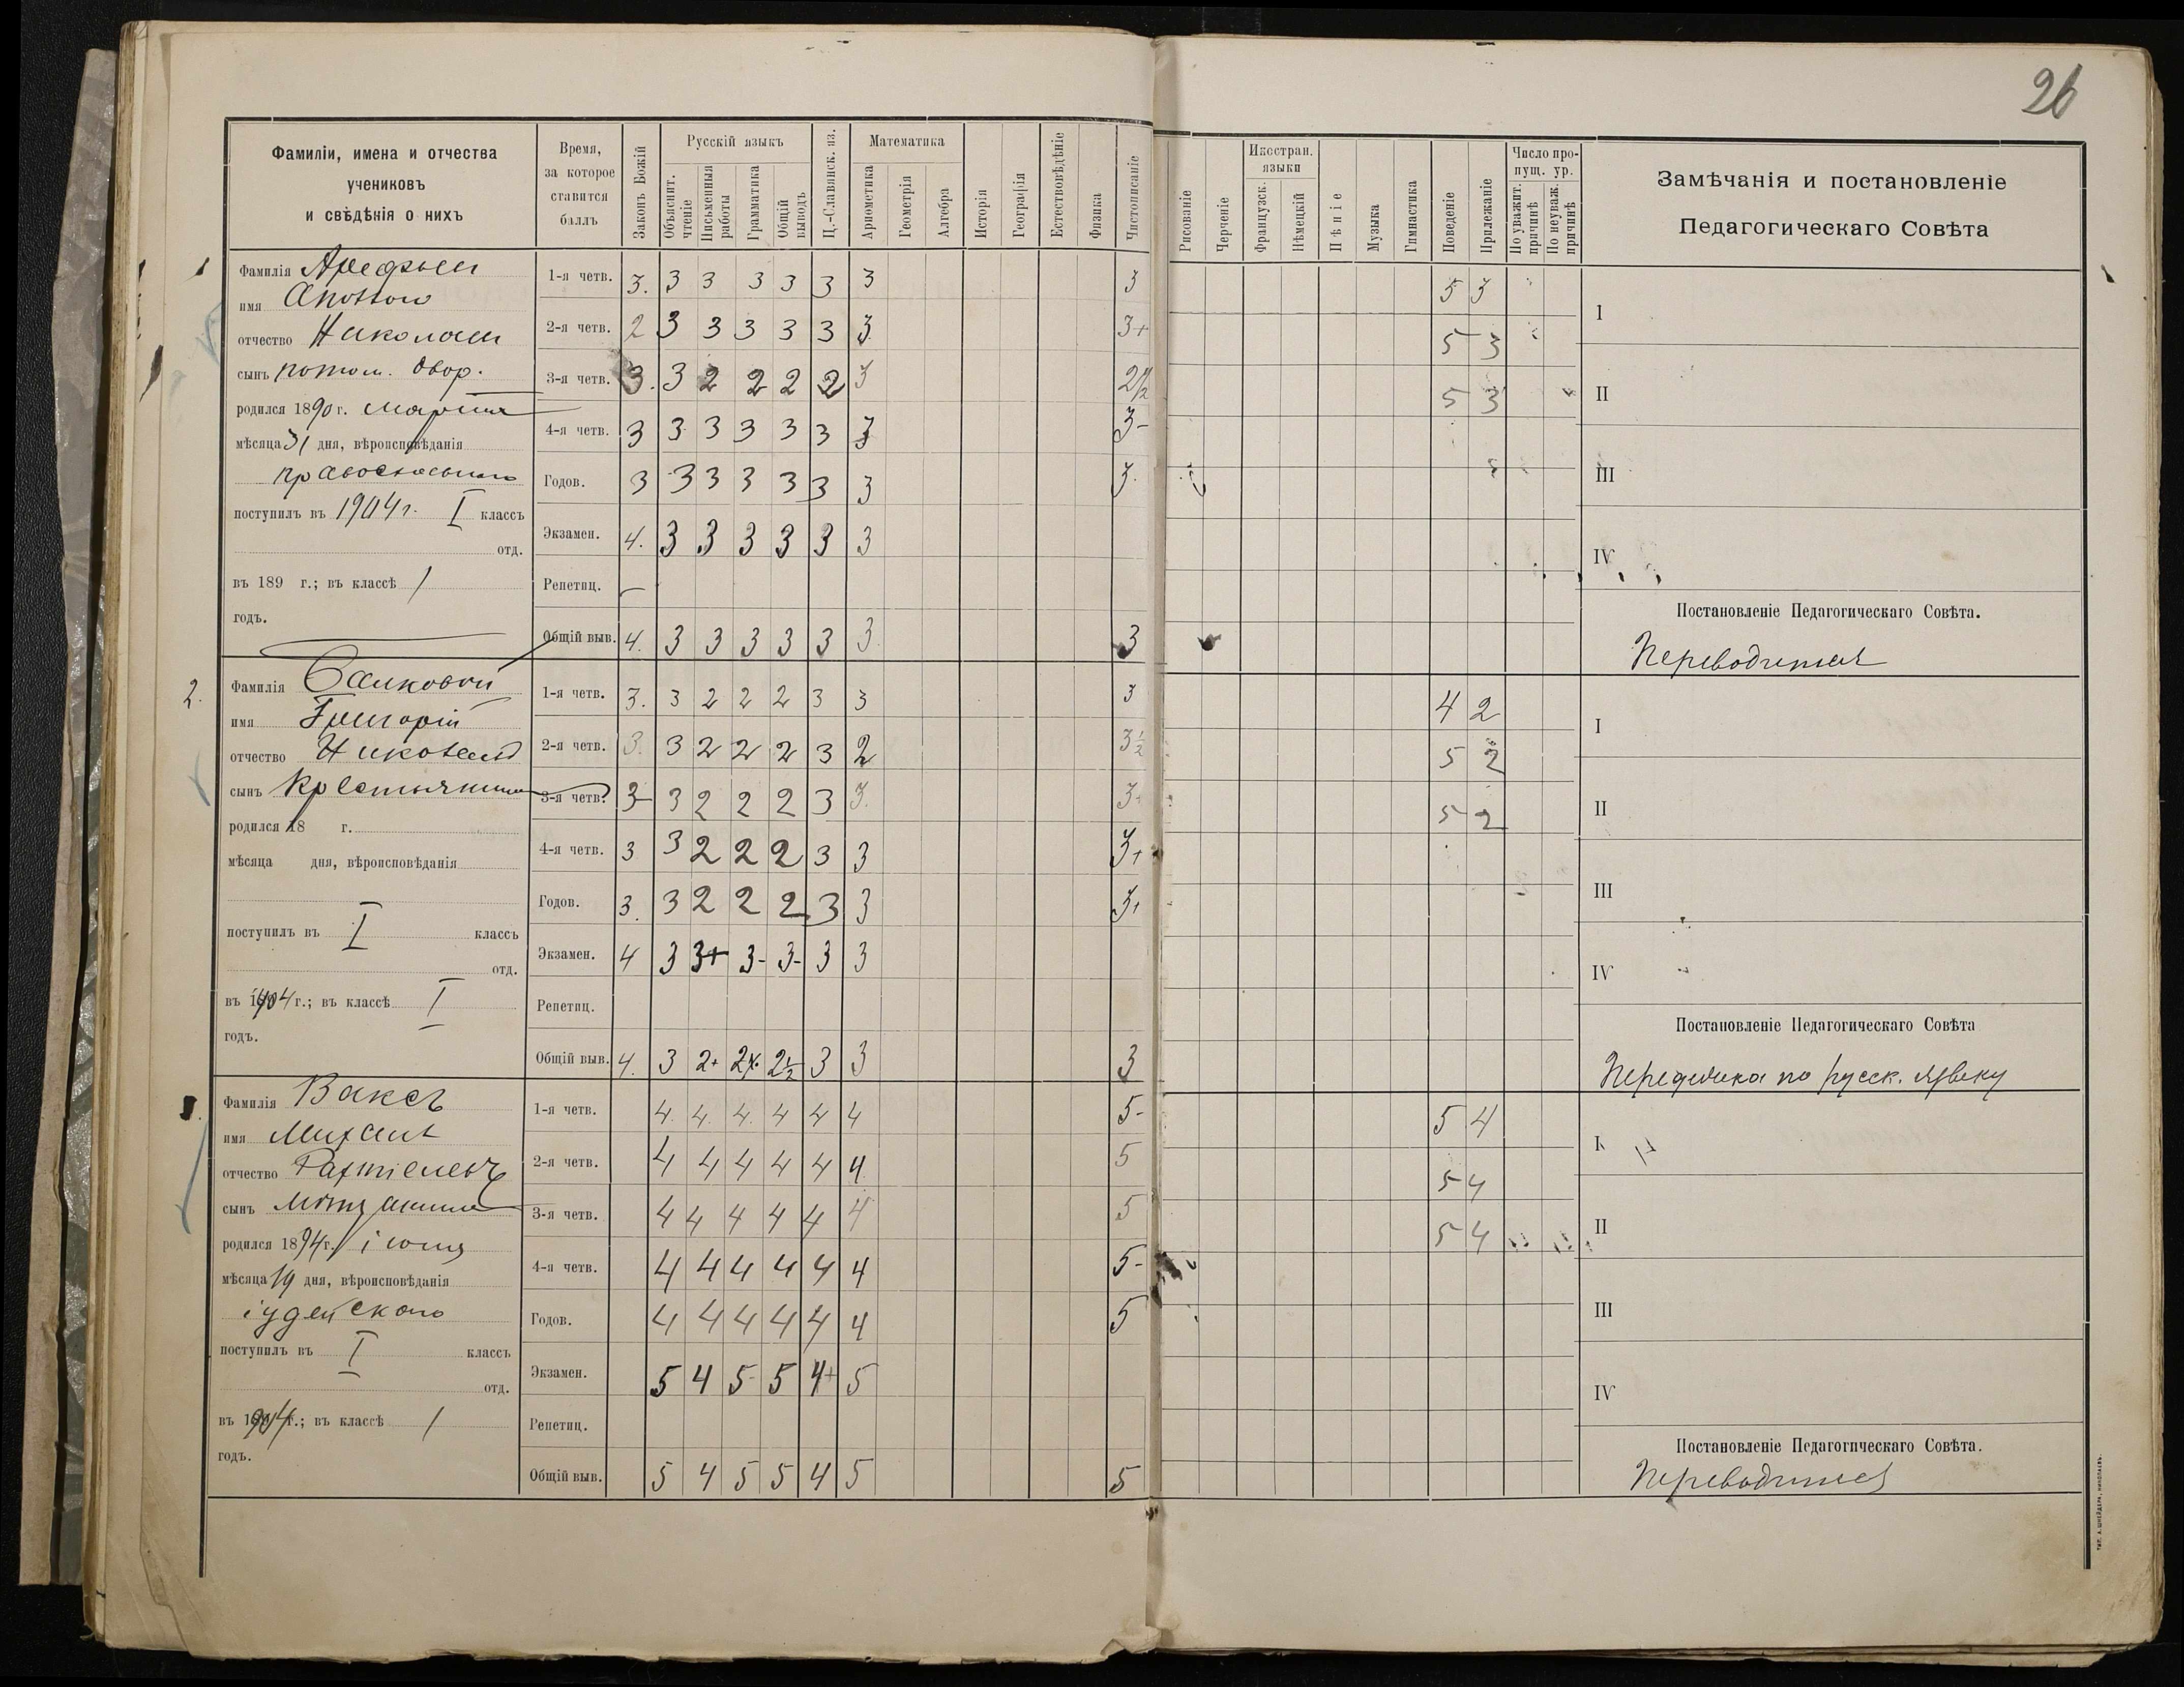 26
Фамиліи, имена и отчества
учениковъ
и свѣдѣнія о нихъ
Время,
за которое
ставится
баллъ
Законъ Божій
Русскій языкъ
Объяснит. чтеніе
Письменныя работы
Грамматика
Общій выводъ
Ц.-Славянск. яз.
Математика
Арифметика
Геометрія
Алгебра
Исторія
Географія
Естествовѣдѣніе
Физика
Чистописаніе
Рисованіе
Черченіе
Иностран. языки
Французск.
Нѣмецкій
Пѣніе
Музыка
Гимнастика
Поведеніе
Прилежаніе
Число пропущ. ур.
По уважит. причинѣ
По неуваж. причинѣ
Замѣчанія и постановленіе
Педагогическаго Совѣта
Фамилія Арефьев
имя
отчество Николаев
сынъ потом. двор.
родился 1890 г. марта
мѣсяца 31 дня, вѣроисповѣданія
православнаго
поступилъ въ 1904 г. I классъ
отд.
въ 189 г.; въ классѣ 1
годъ.
1-я четв. 3. 3 3 3 3 3 3 3 5 3
2-я четв. 2 3 3 3 3 3 3 3+ 5 3
3-я четв. 3. 3 2 2 2 2 3 2½ 5 3
4-я четв. 3 3 3 3 3 3 3 3-
Годов. 3 3 3 3 3 3 3 3.
Экзамен. 4. 3 3 3 3 3 3
Репетиц. —
Общій выв. 4. 3 3 3 3 3 3 3
I
II
III
IV
Постановленіе Педагогическаго Совѣта.
Переводится
2.
Фамилія
имя Григорій
отчество
сынъ Крестьянина
родился 18 г.
мѣсяца дня, вѣроисповѣданія
поступилъ въ I классъ
отд.
въ 1904 г.; въ классѣ I
годъ.
1-я четв. 3. 3 2 2 2 3 3 3 4 2
2-я четв. 3. 3 2 2 2 3 2 3½ 5 2
3-я четв. 3 3 2 2 2 3 3. 3+ 5 2
4-я четв. 3 3 2 2 2 3 3 3+
Годов. 3. 3 2 2 2 3 3 3+
Экзамен. 4 3 3+ 3- 3- 3 3
Репетиц.
Общій выв. 4. 3 2+ 2½ 2½ 3 3 3
I
II
III
IV
Постановленіе Педагогическаго Совѣта
по русск. языку
3.
Фамилія Ваксъ
имя Михаилъ
отчество
сынъ мѣщанина
родился 1894 г. іюня
мѣсяца 19 дня, вѣроисповѣданія
іудейскаго
поступилъ въ I классъ
отд.
въ 1904 г.; въ классѣ 1
годъ.
1-я четв. 4. 4. 4. 4 4 4 5- 5 4
2-я четв. 4 4 4 4 4 4 5 5 4
3-я четв. 4 4 4 4 4 4 5 5 4
4-я четв. 4 4 4 4 4 4 5-
Годов. 4 4 4 4 4 4 5
Экзамен. 5 4 5- 5 4+ 5
Репетиц.
Общій выв. 5 4 5 5 4 5 5
I
II
III
IV
Постановленіе Педагогическаго Совѣта.
Переводится
ТИП. А. ШНЕЙДЕРА, НИКОЛАЕВЪ.